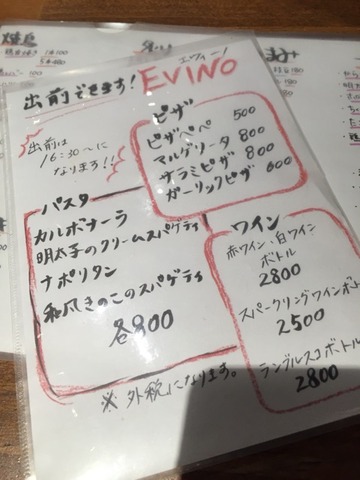 出前できます!
エヴィーノ
EVINO
出前は
16:30〜に
なります!!
ピザ
ピザペペ 500
マルゲリータ 800
サラミピザ 800
ガーリックピザ 600
パスタ
カルボナーラ
明太子のクリームスパゲティ
ナポリタン
和風きのこのスパゲティ
各900
ワイン
赤ワイン・白ワイン
ボトル
2800
スパークリングワインボト
2500
ランブルスコボトル
2800
※外税になります。